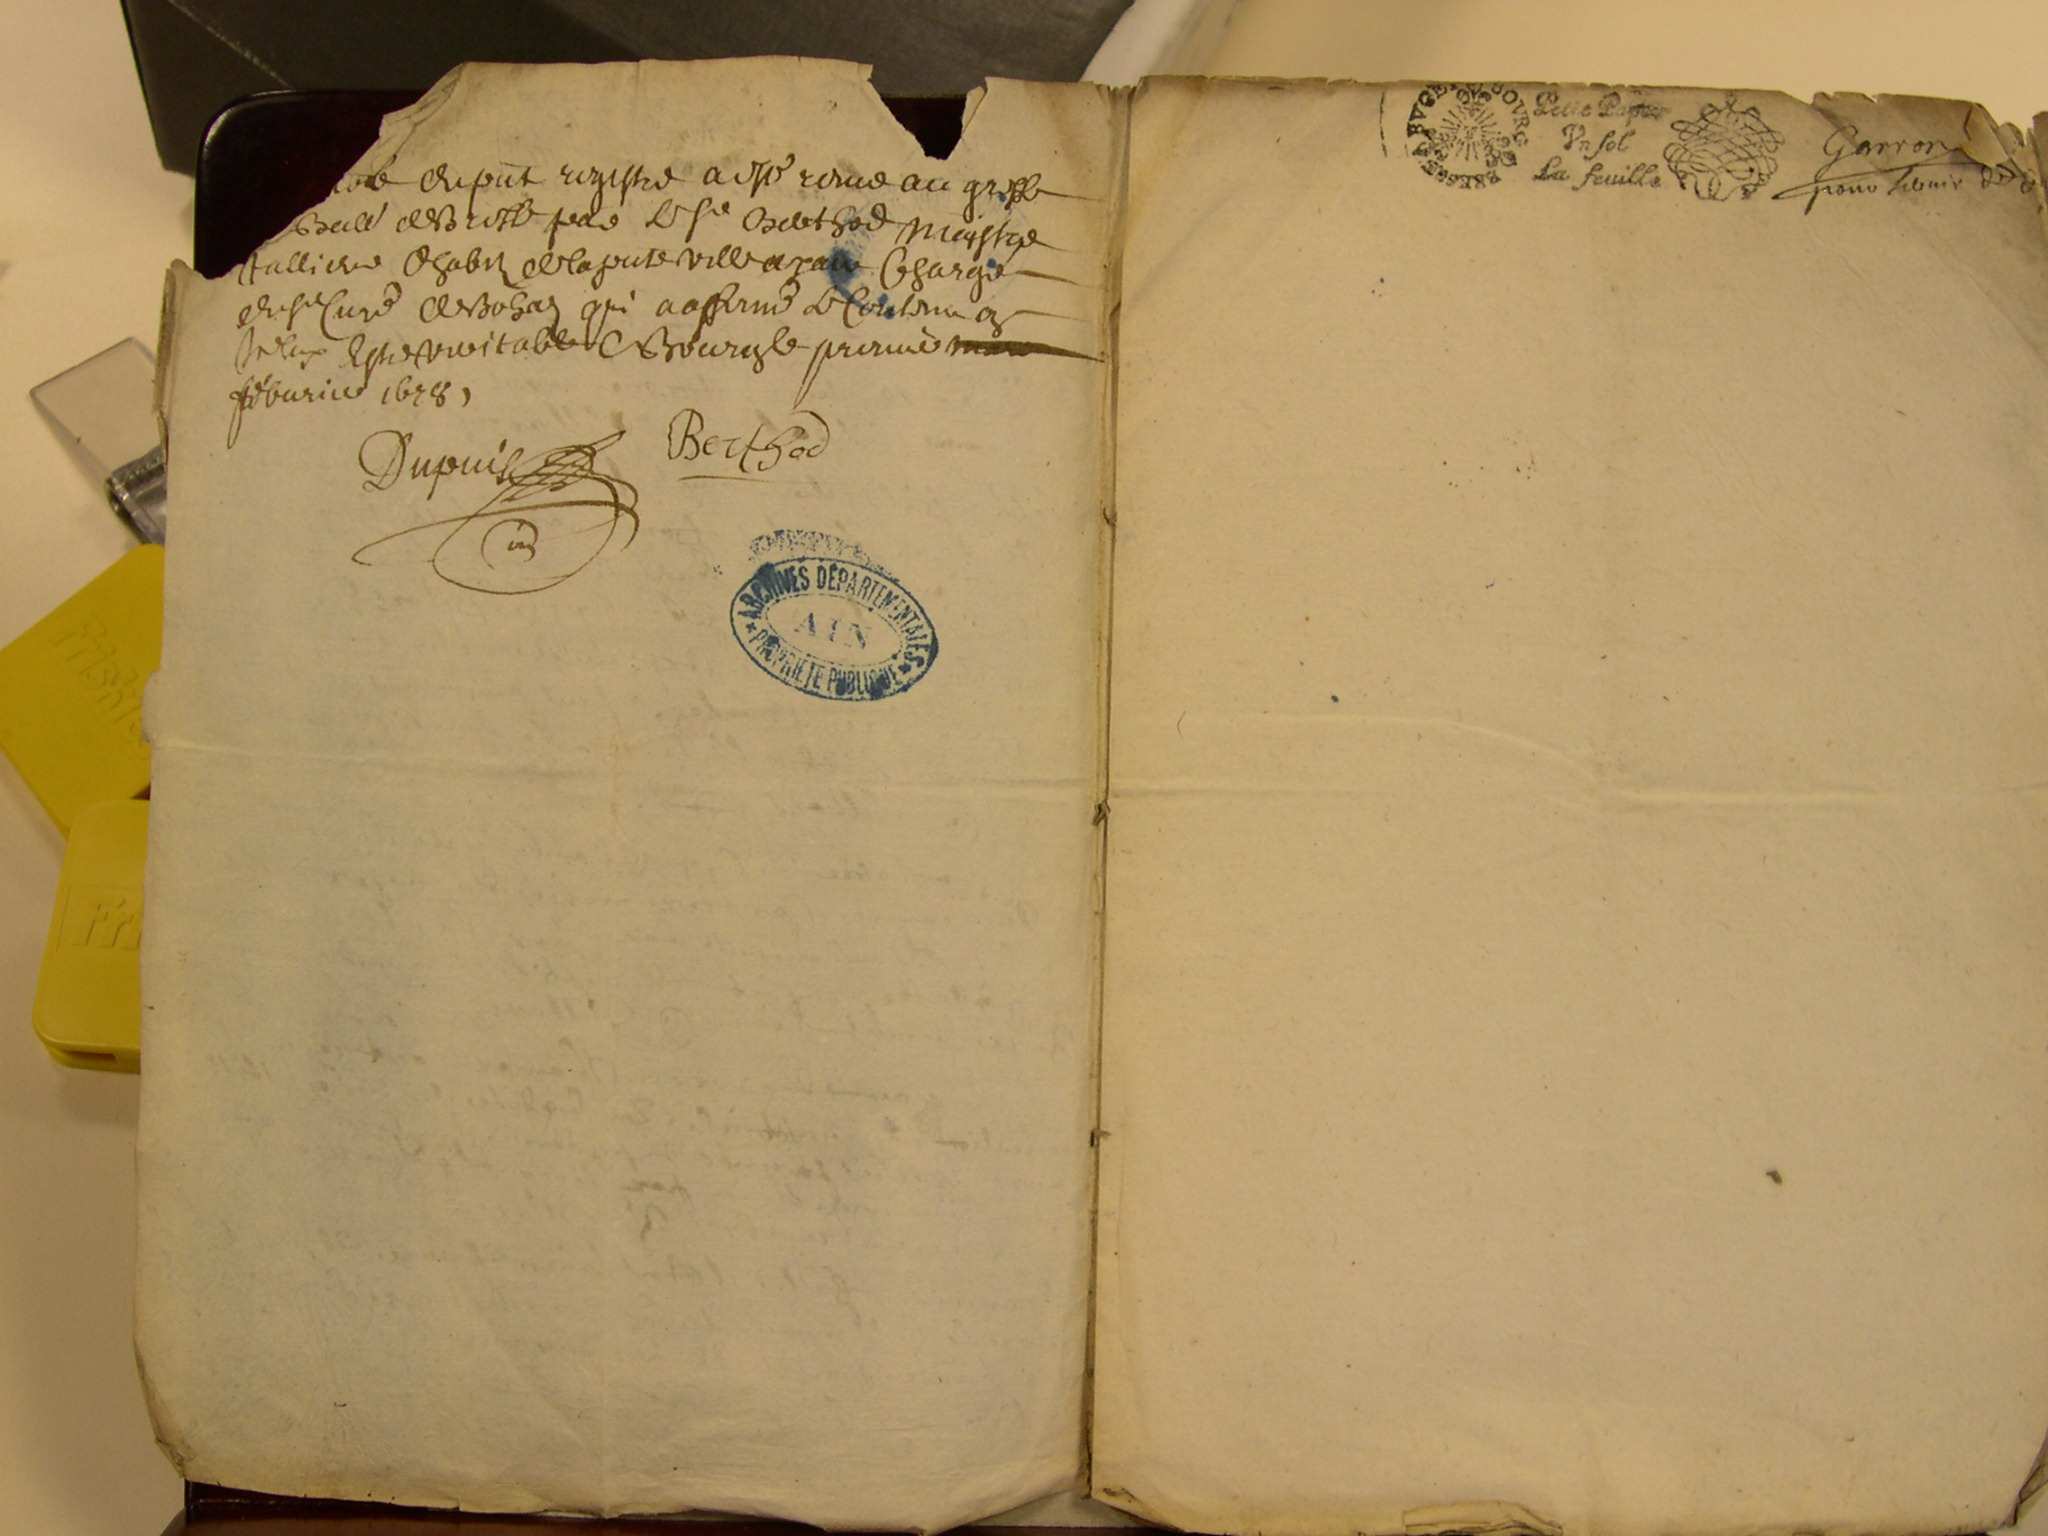 du pnt registre a esté remis au greffe
Baill. de Bresse par le Sr Berthod Maistre
habit. de la pnte ville ayant charge
du Sr Curé de Bohas qui a affirmé le contenu
estre veritable a Bourg le premier
febvrier 1678,
Dupuis
Berthod
ARCHIVES DÉPARTEMENTALES
AIN
PROPRIÉTÉ PUBLIQUE
Petit Papier
Vn sol
La feuille
Garron
pour servir de